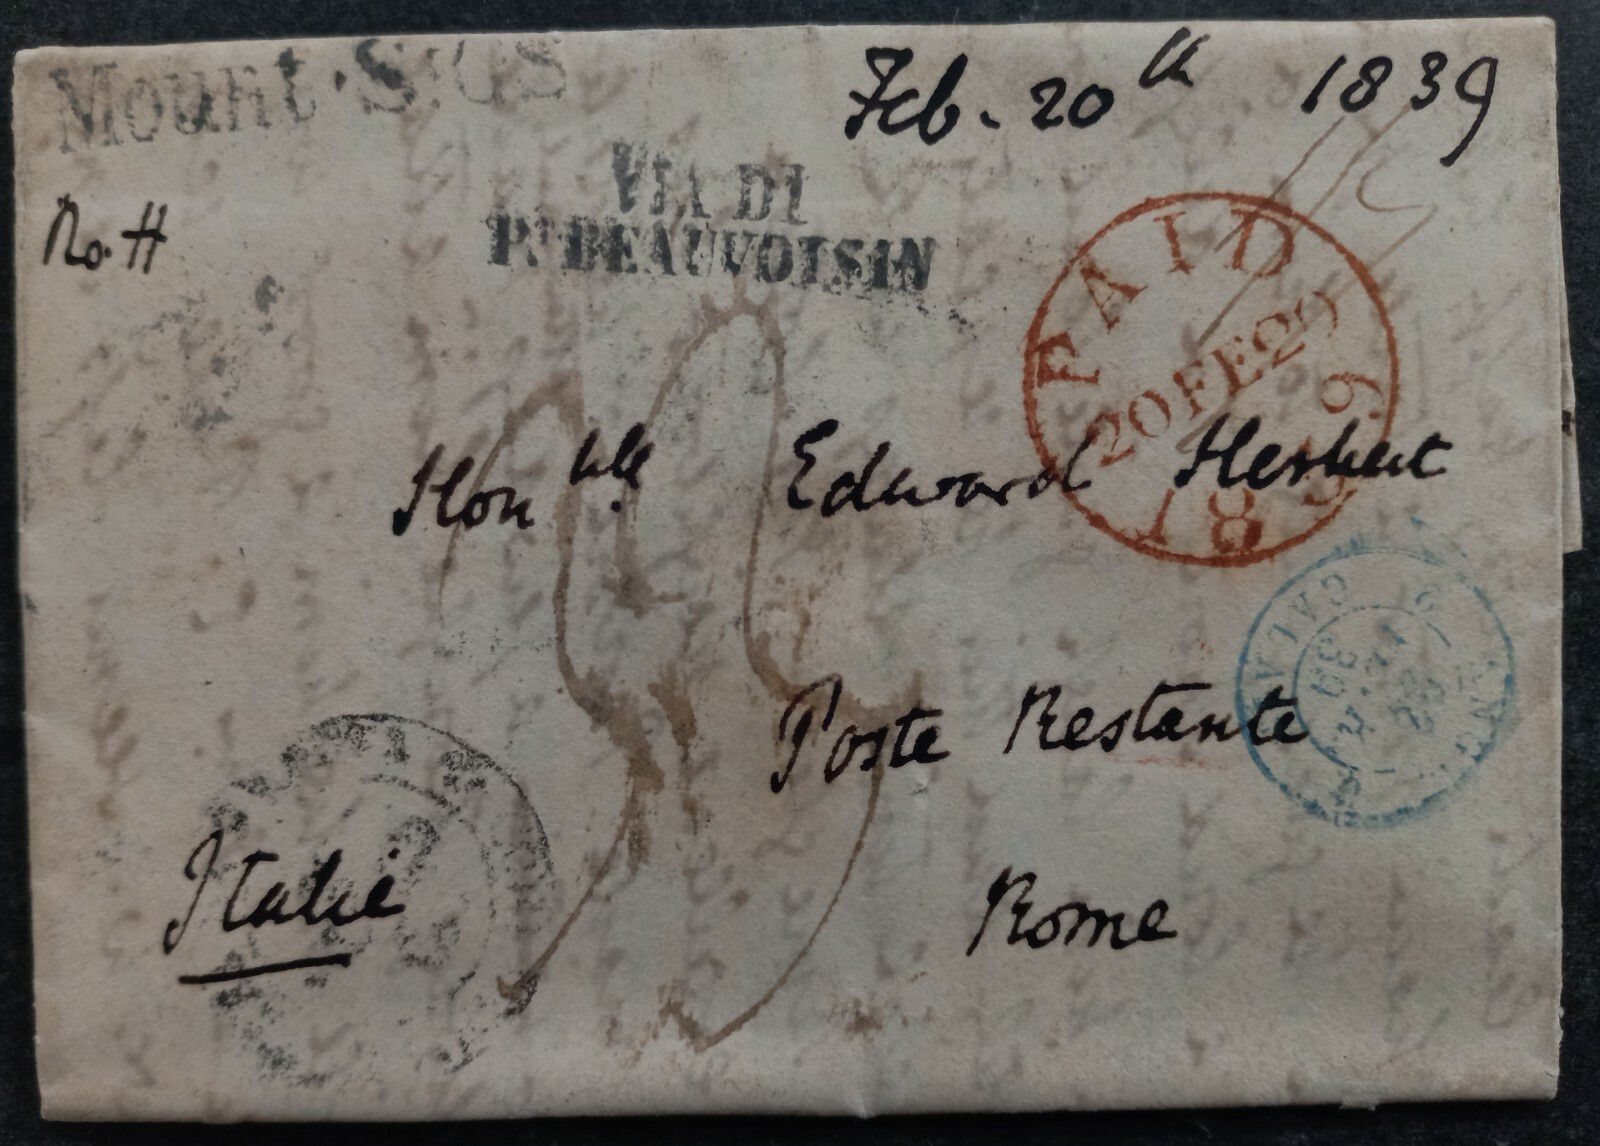 Mount·St:GS
Feb. 20th 1839
VIA DI
Pt. BEAUVOISIN
No. H
PAID
20 FE 20
1839
Honble. Edward Herbert
CALAIS
39
Poste Restante
Italie
Rome